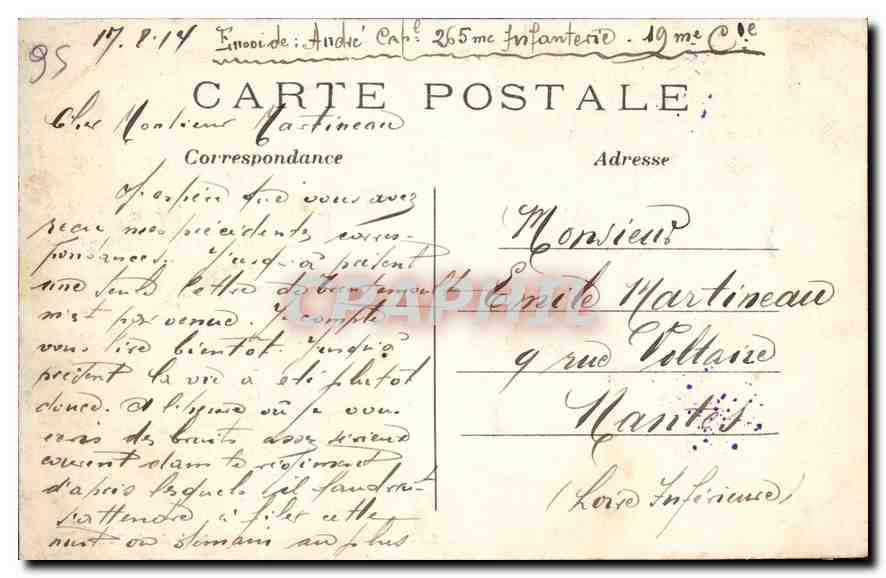 95
17.8.14 Envoi de : André Capl 265me Infanterie . 19me Cie
CARTE POSTALE
Cher Monsieur Martineau
Correspondance
J'espère que vous avez
reçu mes précédentes corres-
pondances. Jusqu'à présent
une seule lettre
m'est parvenue. Je compte
vous lire bientôt. Jusqu'à
présent la vie a été plutôt
douce. A l'heure où je vous
écris des bruits assez sérieux
courent dans le régiment
d'après lesquels il faudrait
s'attendre à filer cette
nuit ou demain au plus
Adresse
Monsieur
Emile Martineau
9 rue Voltaire
Nantes
(Loire Inférieure)
CPAPHIL